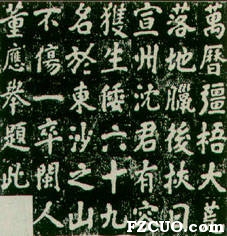 萬曆彊梧大荒
落地臘後挾日
宣州沈君有容
獲生倭六十九
名於東沙之山
不傷一卒閩人
董應舉題此
FZCUO.com